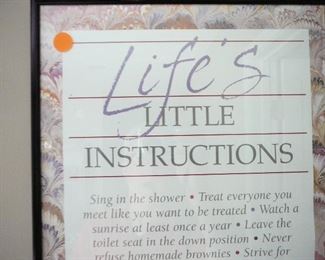 Life's
LITTLE
INSTRUCTIONS
Sing in the shower • Treat everyone you
meet like you want to be treated • Watch a
sunrise at least once a year • Leave the
toilet seat in the down position • Never
refuse homemade brownies • Strive for